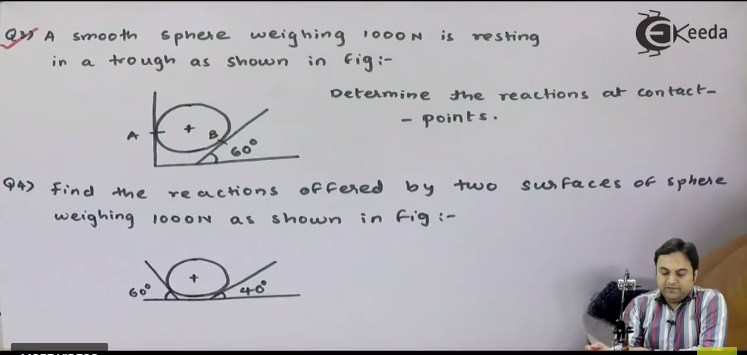 Q3) A smooth sphere weighing 1000N is resting
in a trough as shown in fig:-
Ekeeda
Determine the reactions at contact-
- points.
A
+
B
60°
Q4) Find the reactions offered by two surfaces of sphere
weighing 1000N as shown in fig :-
+
60°
40°